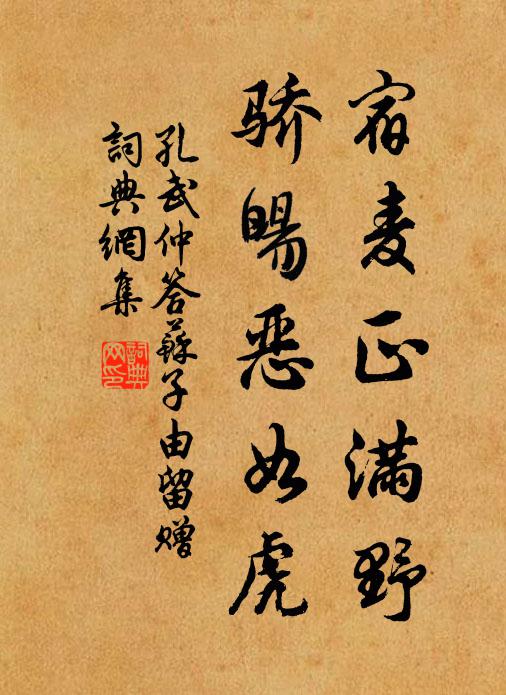 宿麦正满野
骄暘恶如虎
孔武仲答蘇子由留赠
詞典網集
詞典網印